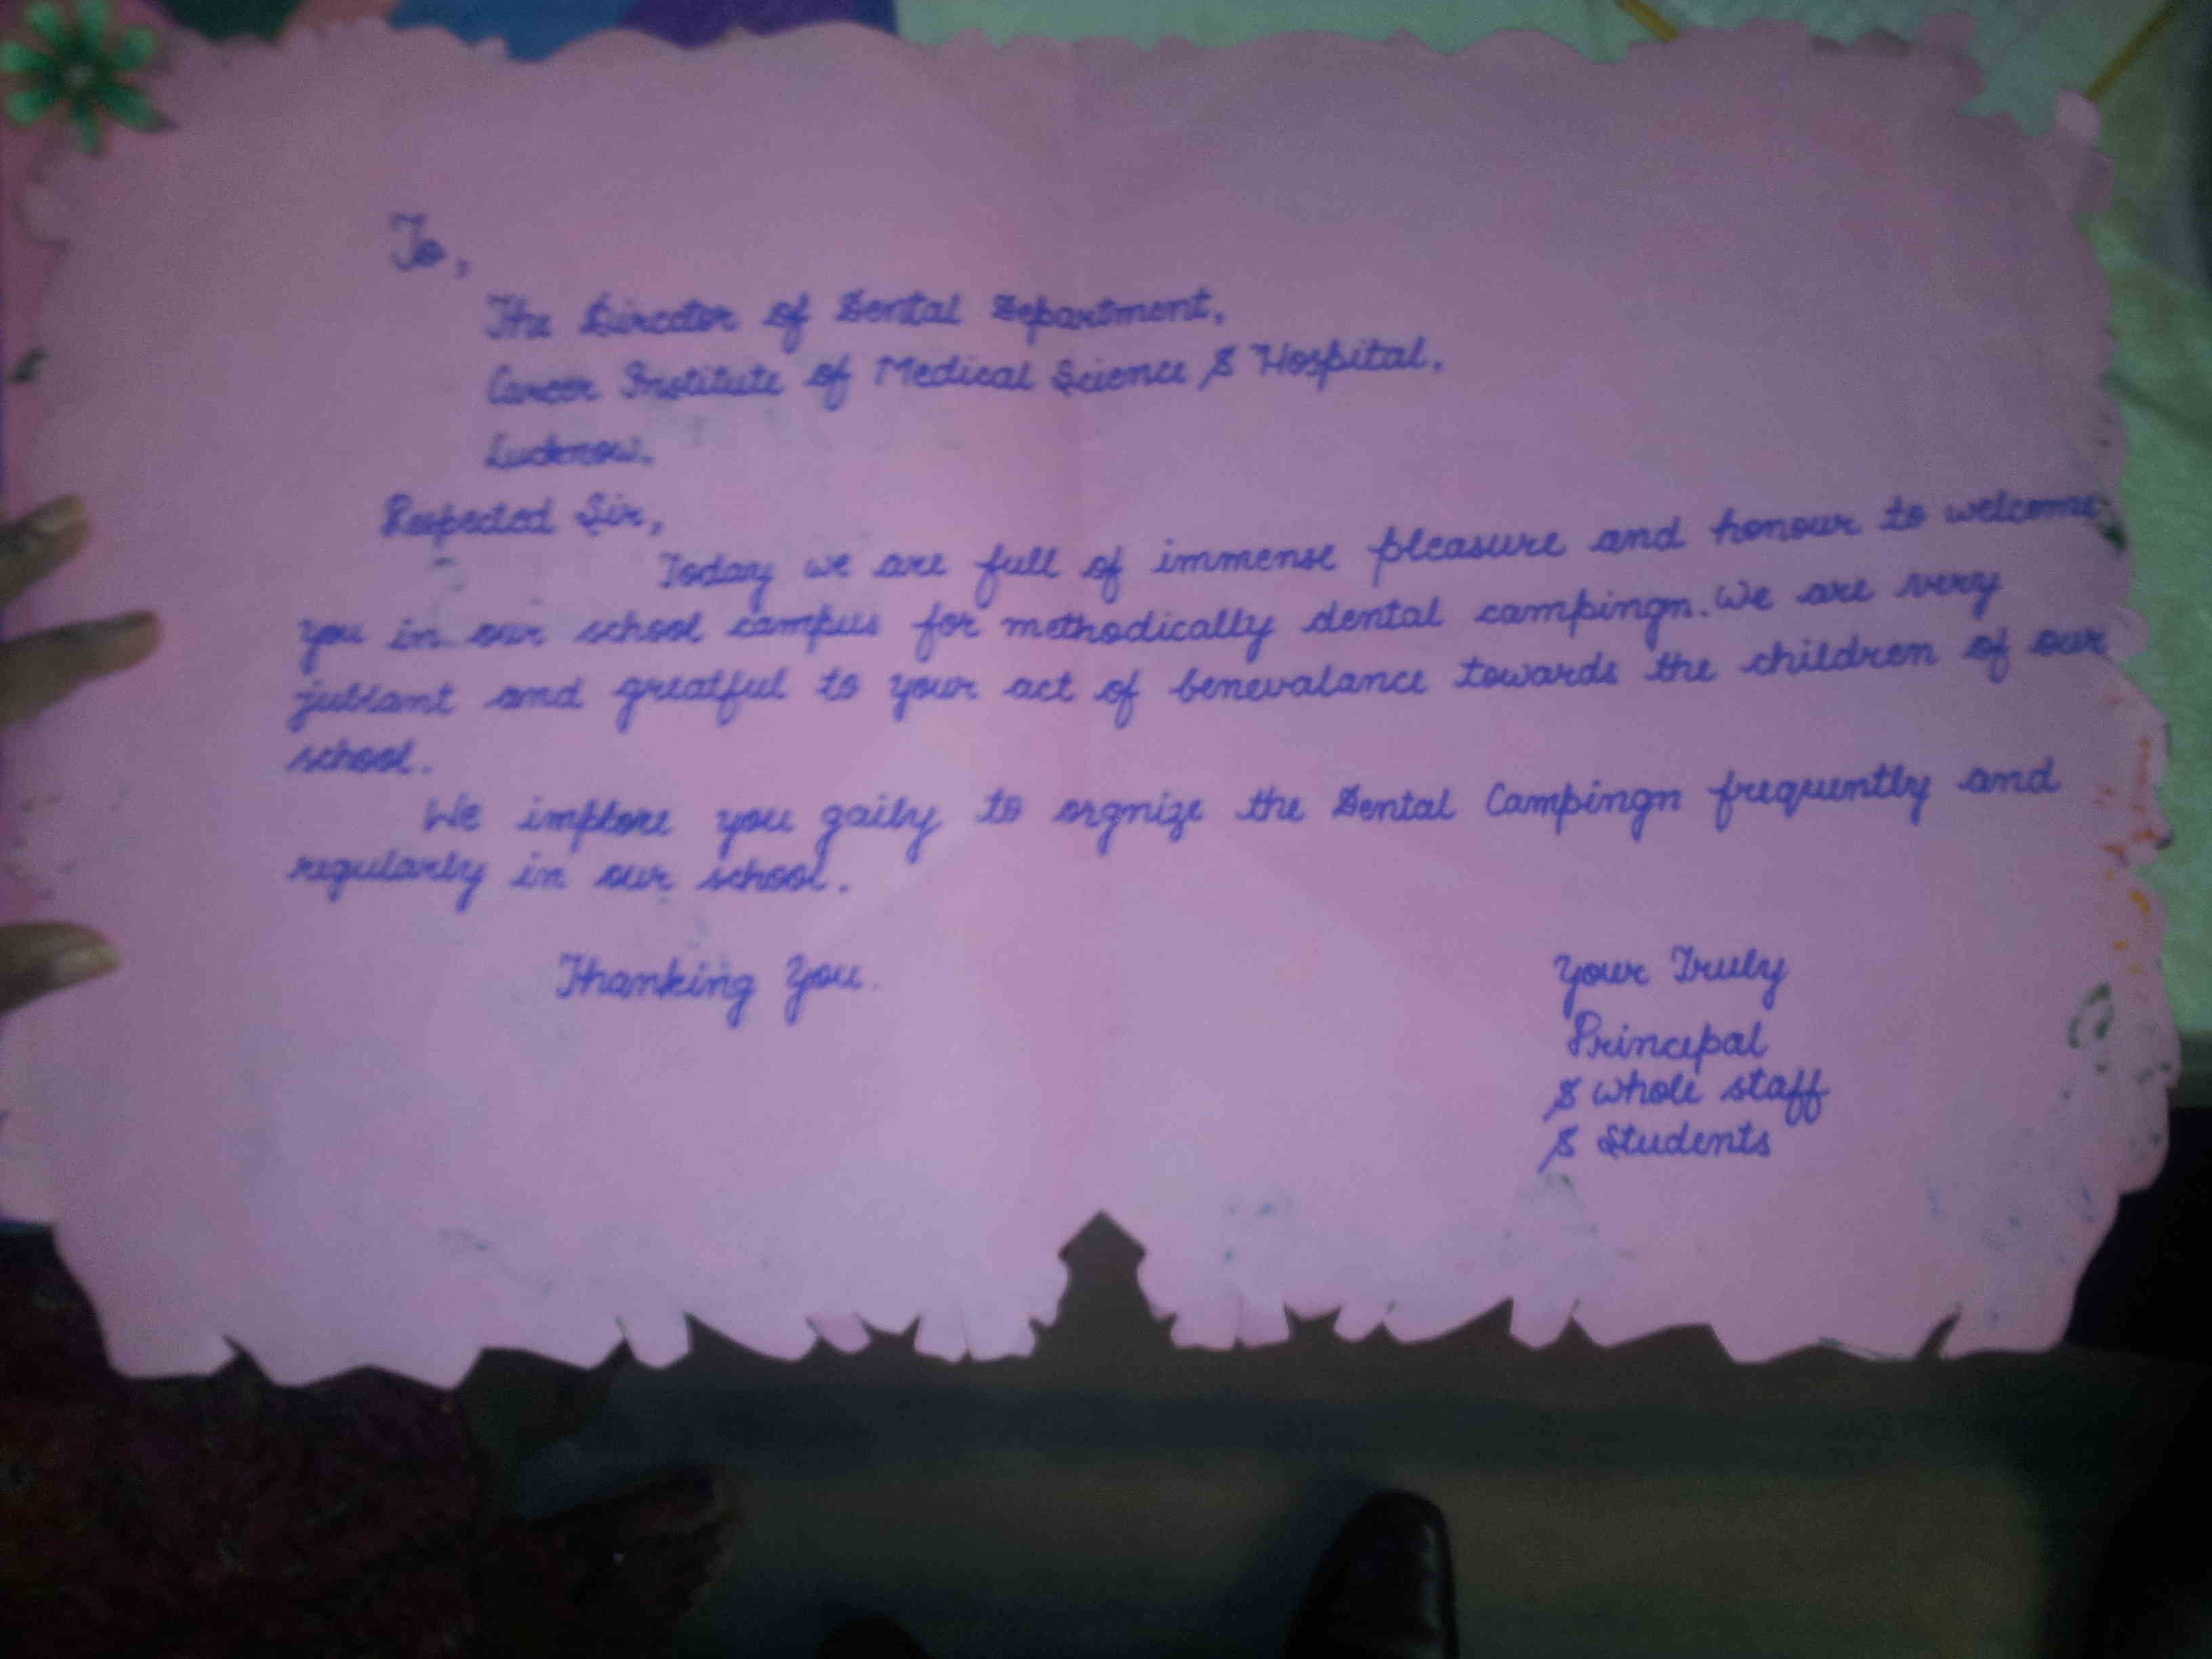 To,
The Director of Dental Department,
Career Institute of Medical Science & Hospital,
Lucknow.
Respected Sir,
Today we are full of immense pleasure and honour to welcome
you in our school campus for methodically dental campingn. We are very
jublant and greatful to your act of benevalance towards the children of our
school.
We implore you gaily to orgnize the Dental Campingn frequently and
regularly in our school.
Thanking You.
Your Truly
Principal
& whole staff
& Students